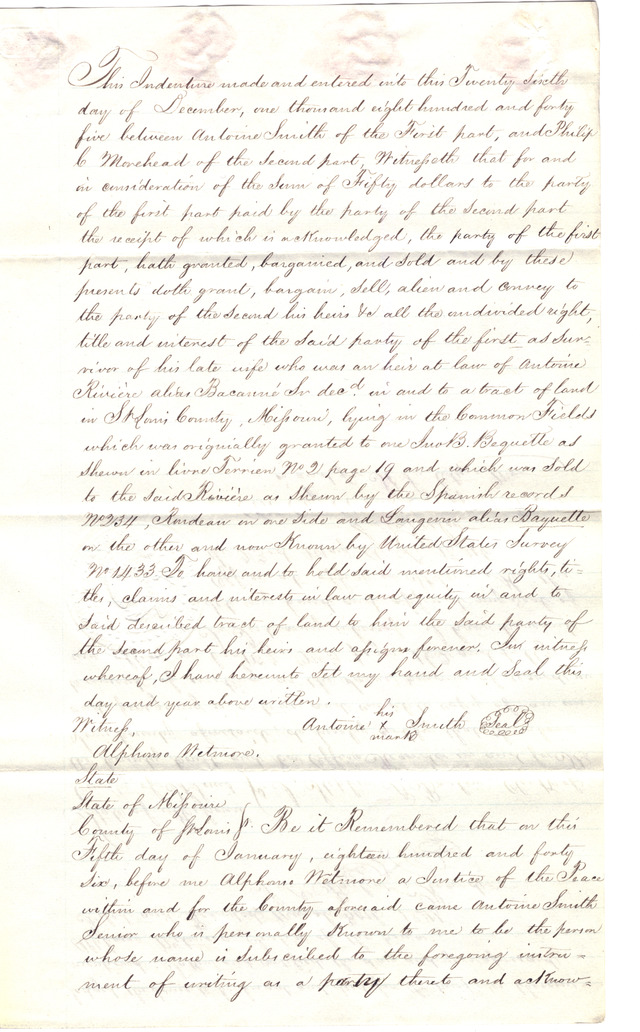 This Indenture made and entered into this Twenty Sixth
day of December, one thousand eight hundred and forty
five between Antoine Smith of the First part, and Philip
C Morehead of the second part, Witnesseth that for and
in consideration of the Sum of Fifty dollars to the party
of the first part paid by the party of the second part
the receipt of which is acknowledged, the party of the first
part, hath granted, bargained, and sold and by these
presents doth grant, bargain, sell, alien and convey to
the party of the second his heirs &c all the undivided right,
title and interest of the said party of the first as sur=
vivor of his late wife who was an heir at law of Antoine
Rivière alias Bacanné Sr decd. in and to a tract of land
in St Louis County, Missouri, lying in the Common Fields
which was originally granted to one Jno B. Bequette as
shewn in livre Terrien No 2 page 19 and which was sold
to the said Rivière as shewn by the Spanish records
No 234, Rondeau on one side and Langevin alias Baquette
on the other and now Known by United States Survey
No 1433. To have and to hold said mentioned rights, ti=
tles, claims and interests in law and equity in and to
said described tract of land to him the said party of
the second part his heirs and assigns forever. In witness
whereof, I have hereunto set my hand and seal this
day and year above written.
Witness, Antoine his x mark Smith Seal
Alphonso Wetmore.
State
State of Missouri
County of St Louis } s. Be it Remembered that on this
Fifth day of January, eighteen hundred and forty
six, before me Alphonso Wetmore a Justice of the Peace
within and for the County aforesaid came Antoine Smith
Senior who is personally Known to me to be the person
whose name is subscribed to the foregoing instru=
ment of writing as a party thereto and acknow=